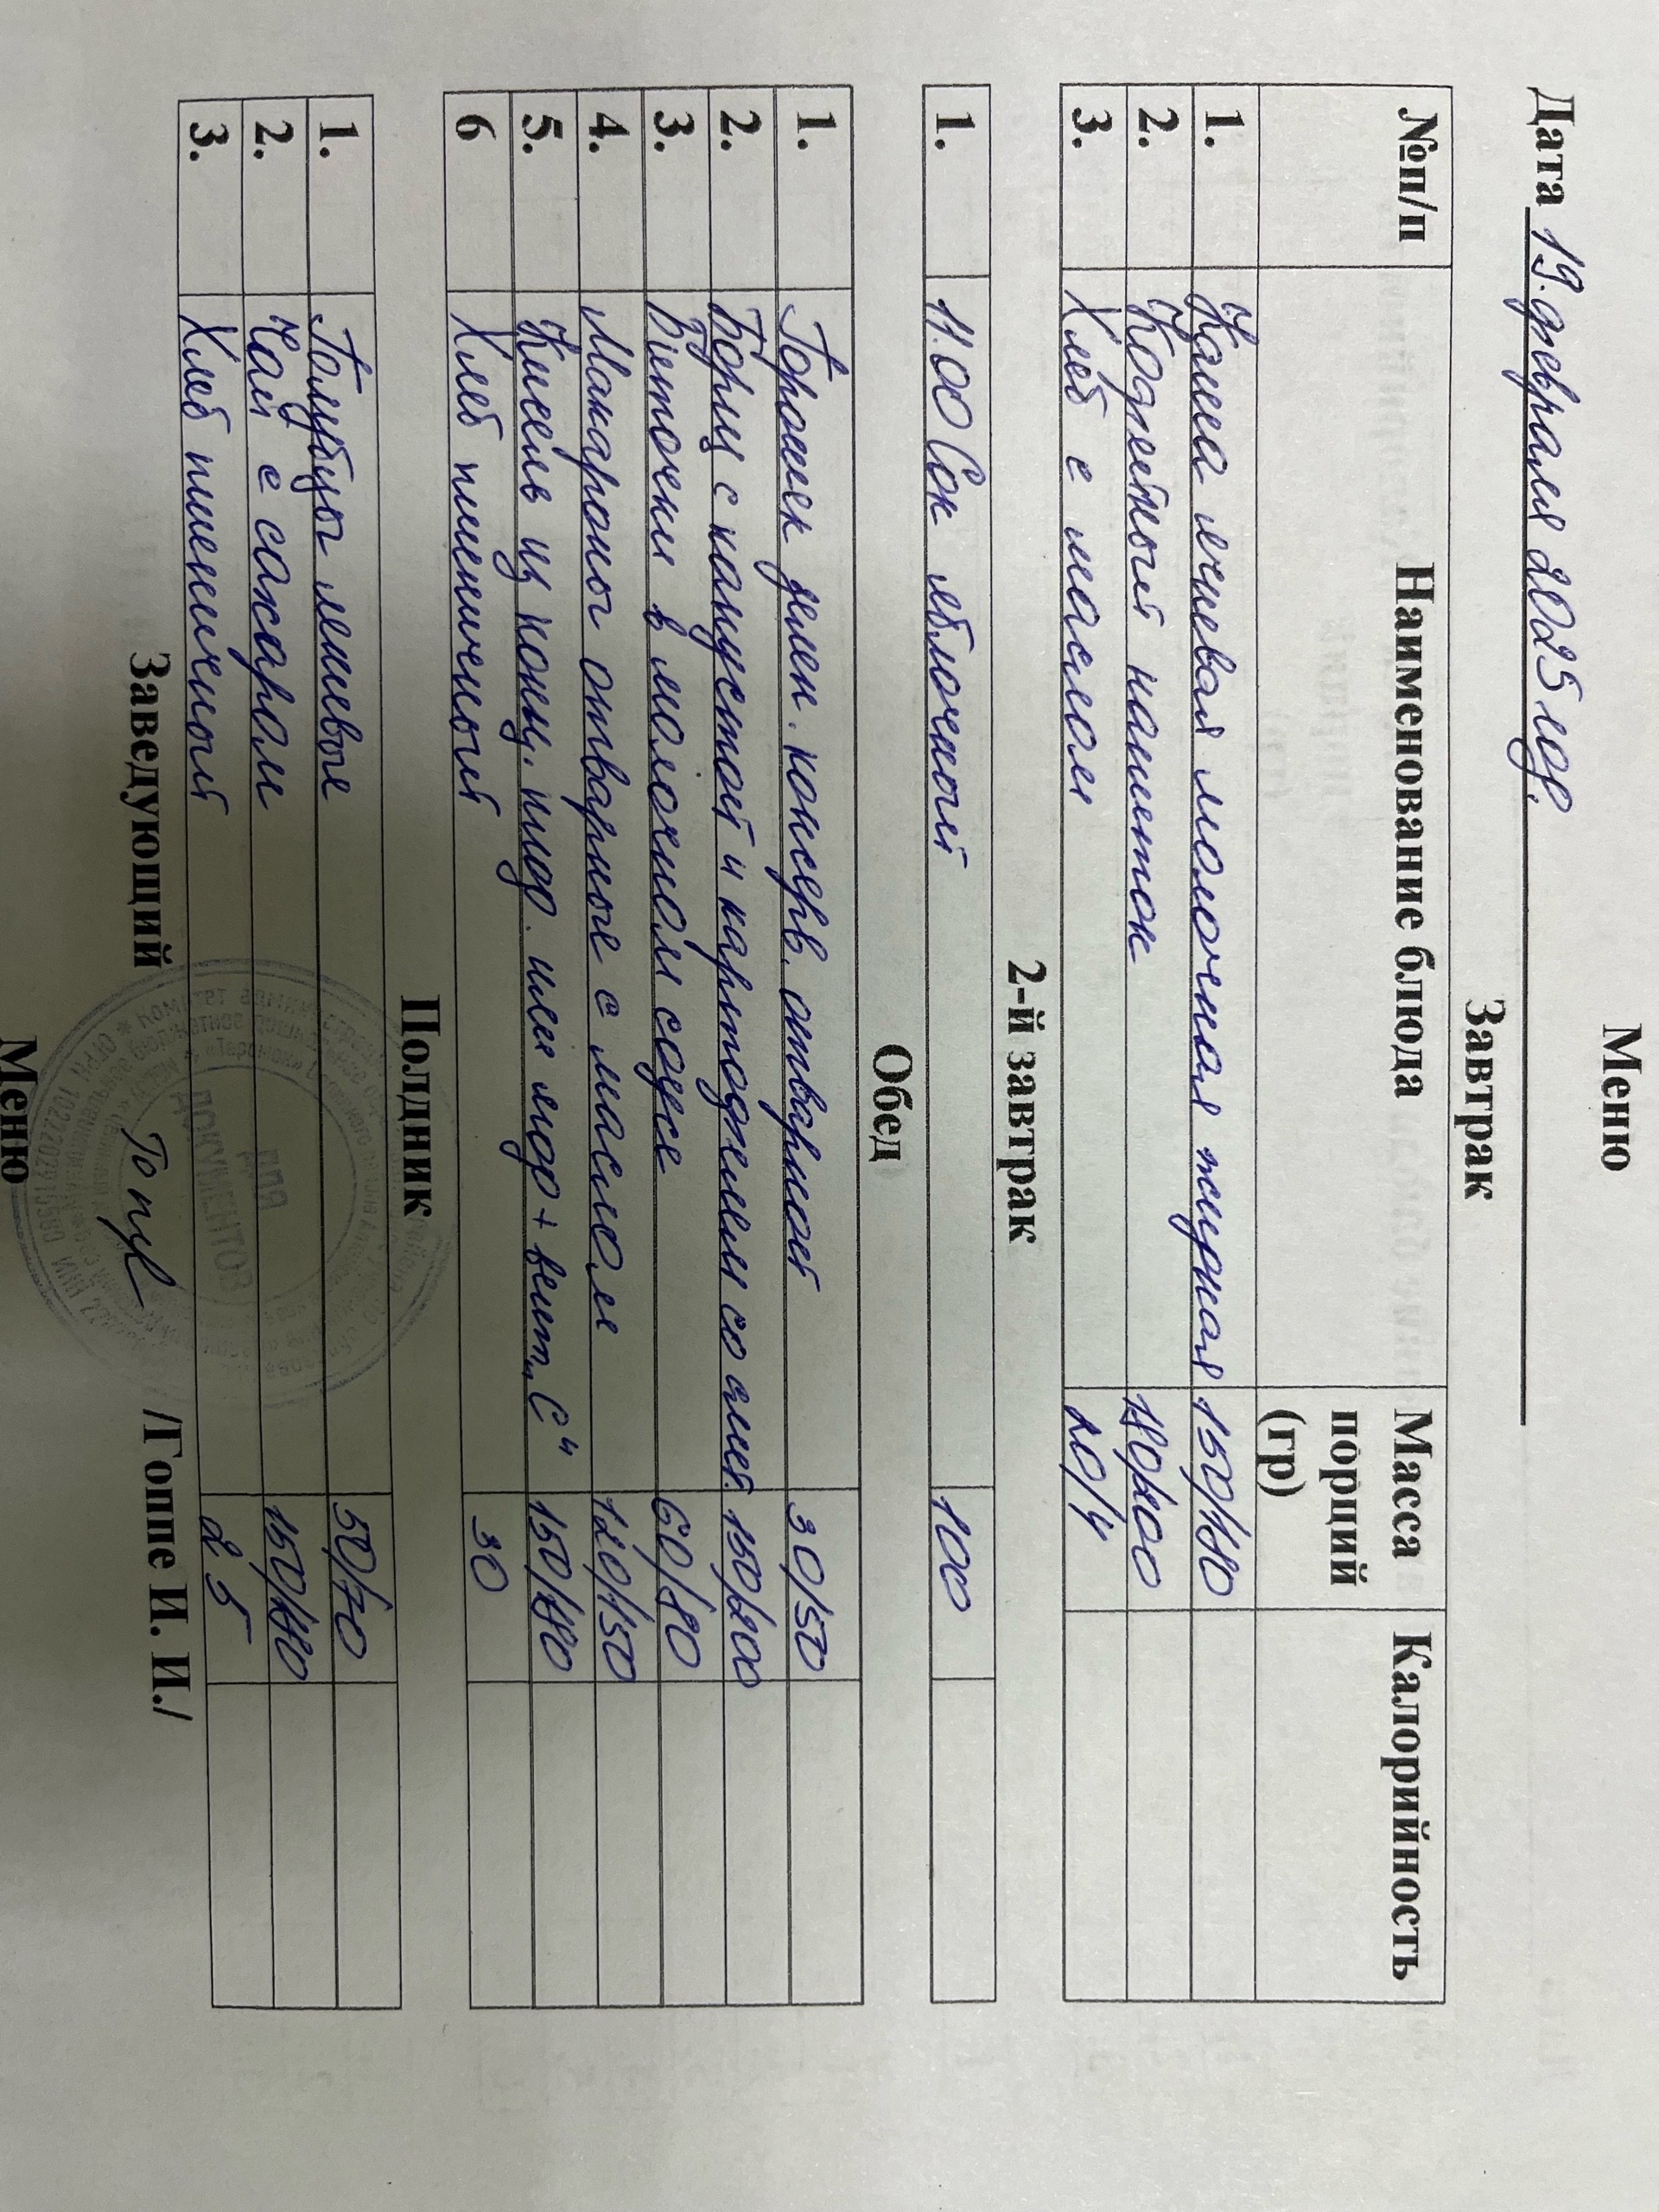 Меню
Дата 19. февраля 2025 год.
Завтрак
№п/п Наименование блюда Масса порций (гр) Калорийность
1. Каша ячневая молочная жидкая 150/180
2. Кофейный напиток 180/200
3. Хлеб с маслом 20/4
2-й завтрак
1. 11.00 Сок яблочный 100
Обед
1. Горошек зелен. консерв. отварной 30/50
2. Борщ с капустой и картофелем со смет. 150/200
3. Биточки в молочном соусе 60/80
4. Макароны отварные с маслом 120/150
5. Кисель из конц. плод. или ягод + вит. „С" 150/180
6 Хлеб пшеничный 30
Полдник
1. Голубцы ленивые 50/70
2. Чай с сахаром 150/180
3. Хлеб пшеничный 25
Заведующий /Гоппе И. И./
ДЛЯ
ДОКУМЕНТОВ
Меню